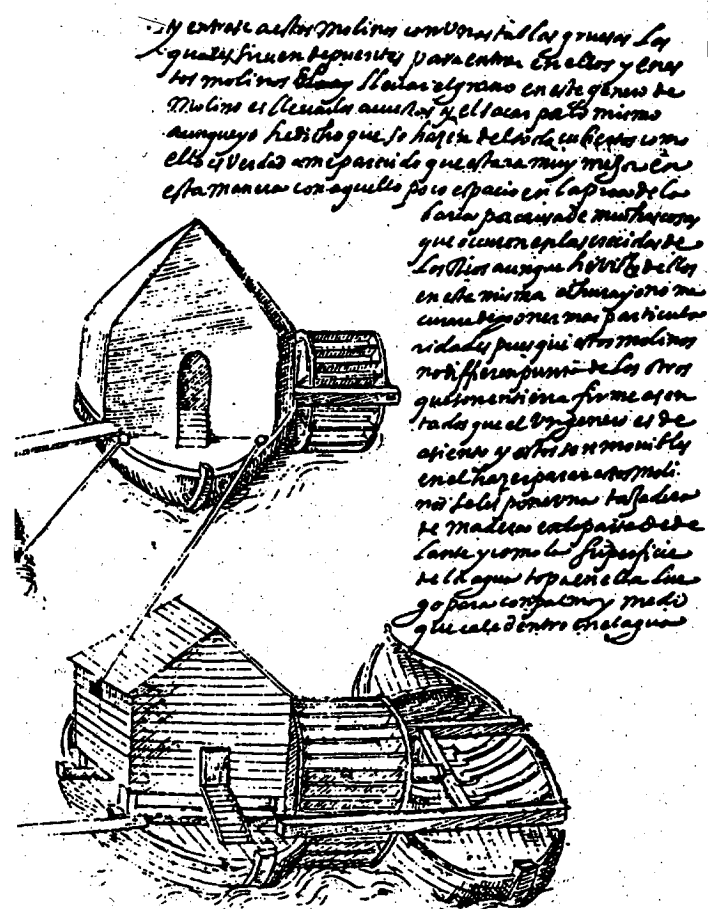 y entrase a estos molinos con unas tablas gruesas las
quales siruen de puentes para entrar en ellos y en es
tos molinos el llevar el grano en este genero de
molino es lleuarlo acuestas y el sacar para lo mismo
aunque yo he dicho que se hazen del todo cubiertos como
ello es verdad a mi parecido que estara muy mejor en
esta manera con aquello poco espacio en la proa de la
barca por causa de muchas cosas
que ocuren en las crecidas de
los Rios aunque he visto dellos
en esta misma yo no me
curare de poner mas particula
ridades pues que estos molinos
no difieren punto de los otros
que son en tierra firme asen
tados que el un genero es de
asiento y estos son mouibles
en el hazer parar estos moli
nos se les pone una tajadera
de madera en la parte de de
lante y como la superficie
de la agua topa en ella lue
go para con palmo y medio
que cale dentro en el agua